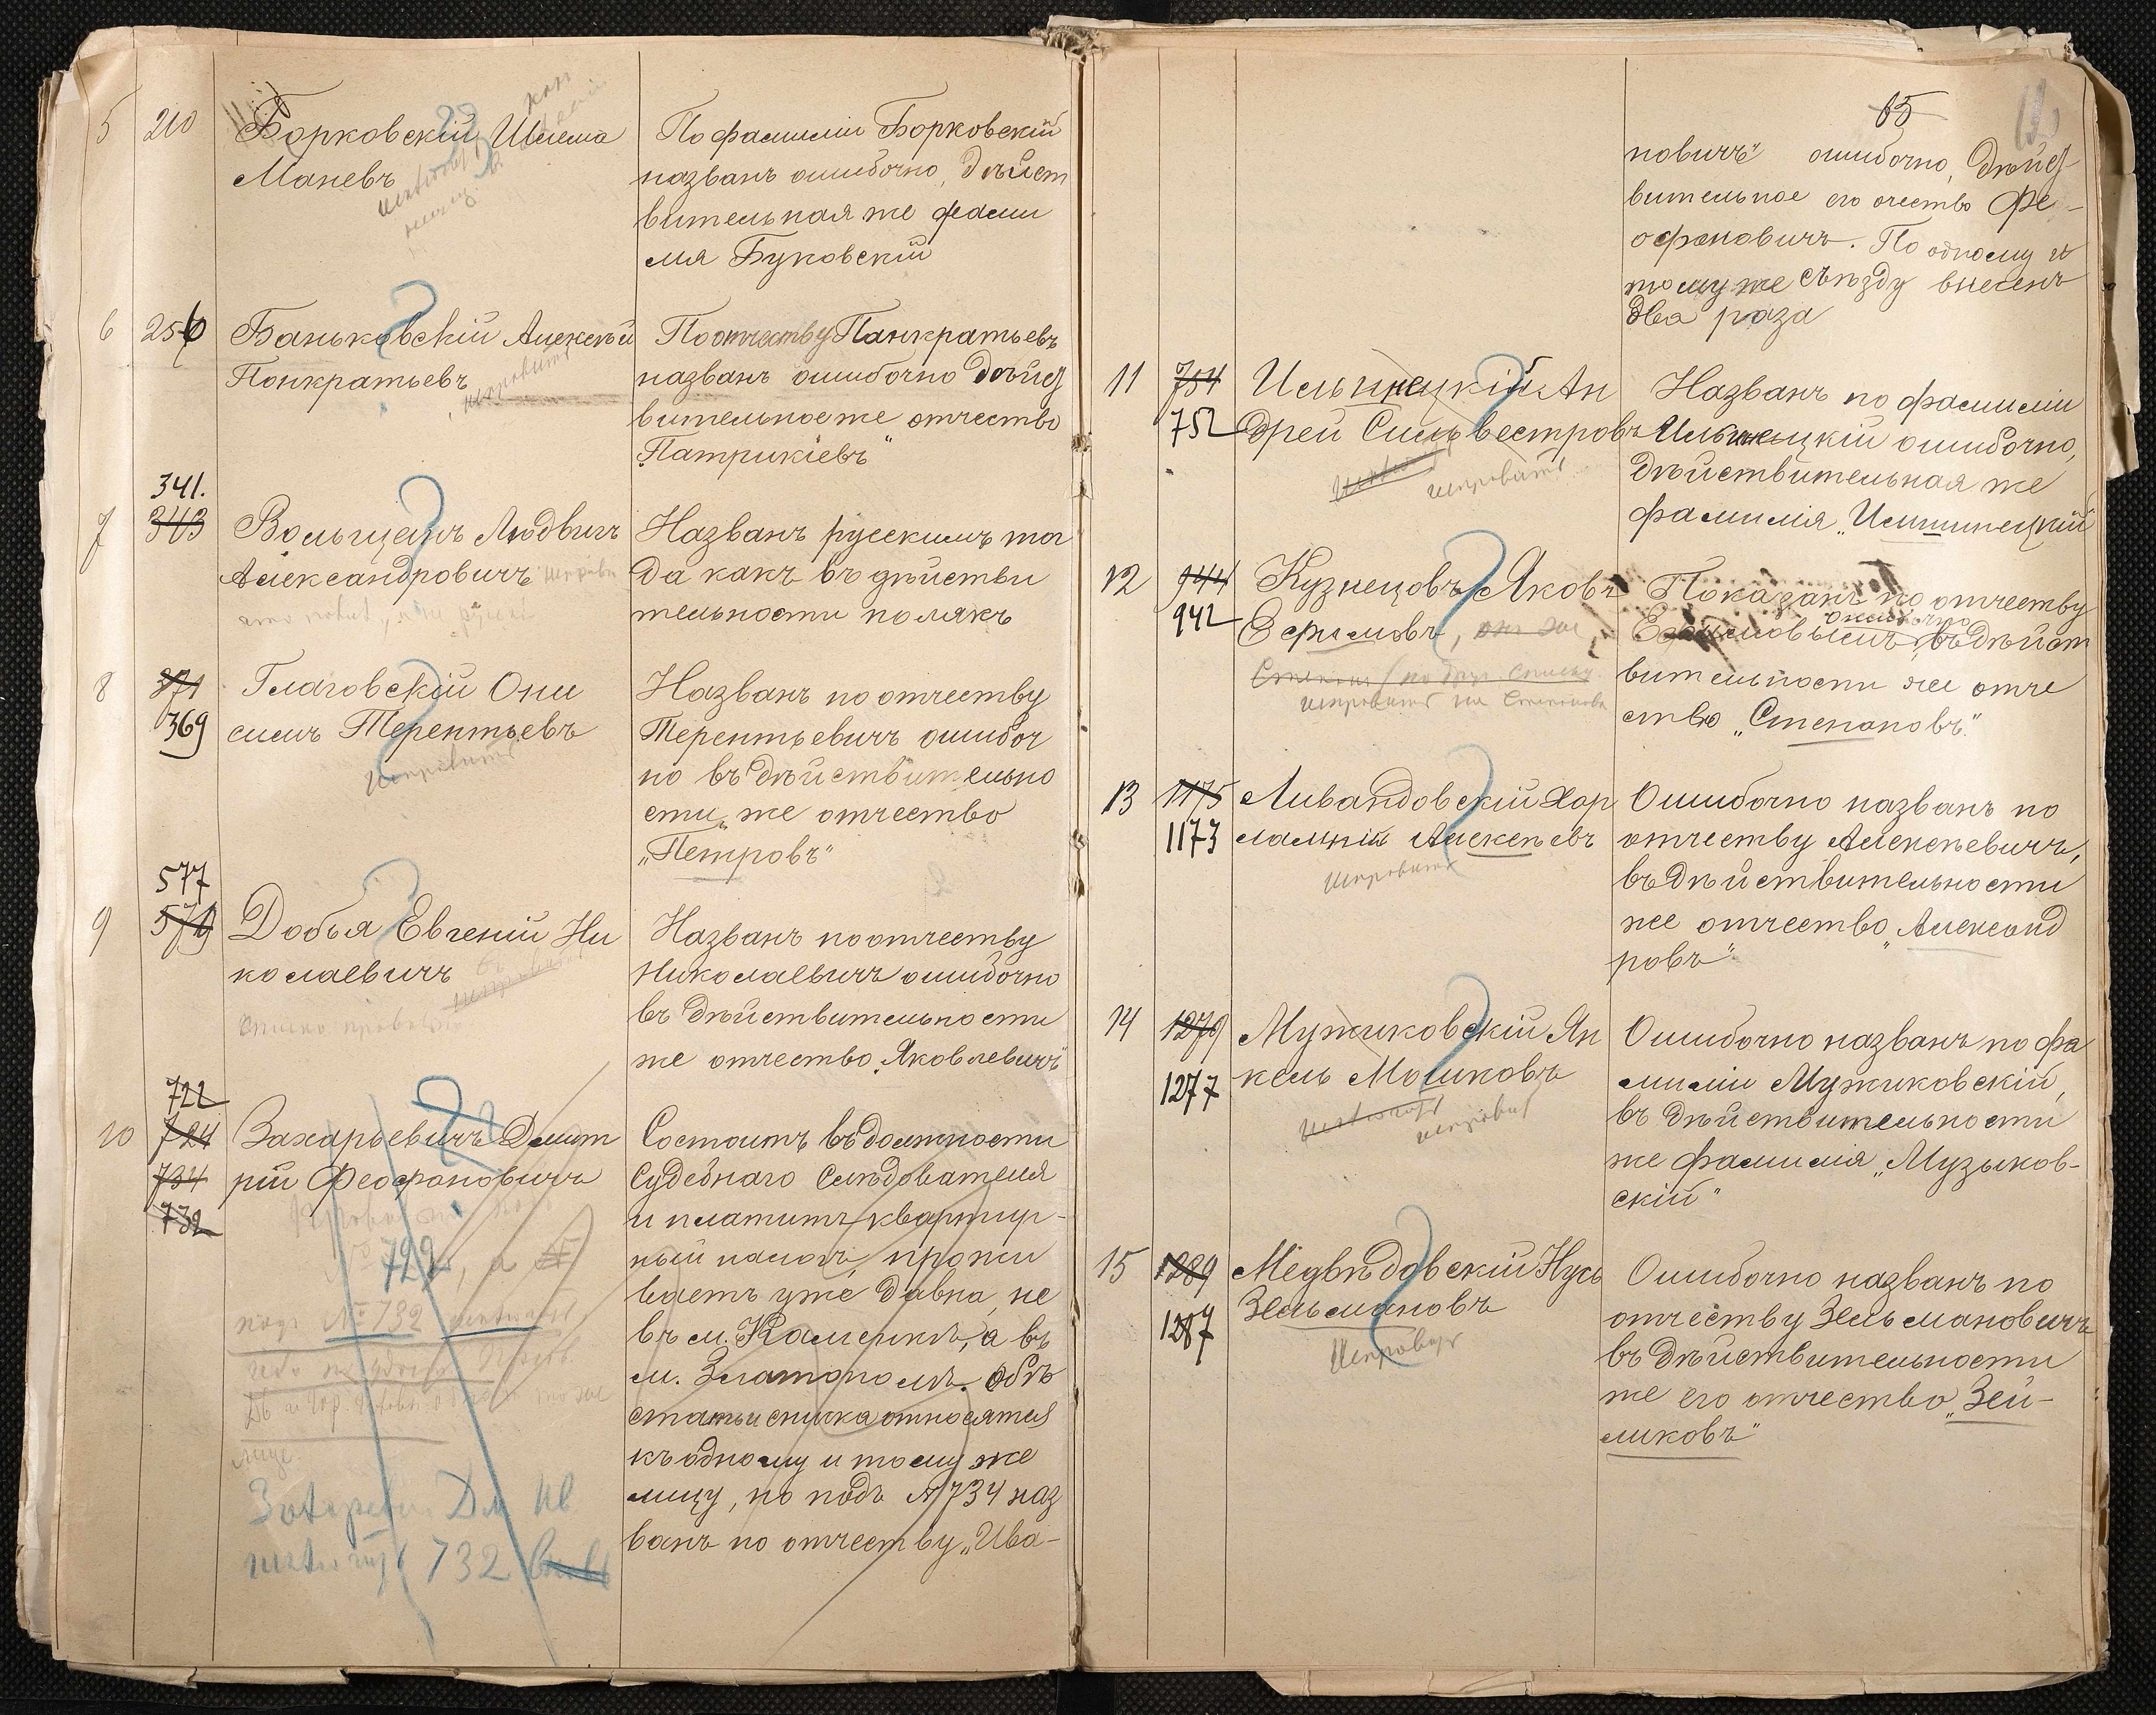 5 210 Борковскій Шлема
Маневъ
По фамиліи Борковскій
названъ ошибочно, дѣйст
вительная же фами
лія Буковскій
6 256 Баньковскій Алексѣй
Понкратьевъ
исправить
По отчеству Панкратьевъ
названъ ошибочно дѣйст
вительное же отчество
„Патрикіевъ"
341.
7 343 Вольцанъ Людвигъ
Александровичъ
Названъ русскимъ тог
да какъ въ дѣйстви
тельности полякъ
8 371 Глаговскій Они
369 симъ Терентьевъ
Исправить
Названъ по отчеству
Терентьевичъ ошибоч
но въ дѣйствительно
сти же отчество
„Петровъ"
577
9 579 Добья Евгеній Ни
колаевичъ
исправить
Названъ по отчеству
Николаевичъ ошибочно
въ дѣйствительности
же отчество „Яковлевичъ"
722
10 724 Захарьевичъ Дмит
734 рій Феофановичъ
732
№ 722, а
подъ № 732
лице
732
Состоитъ въ должности
Судебнаго Слѣдователя
и платитъ квартир-
ный налогъ прожи
ваетъ уже давно, не
въ м. Каменкѣ, а въ
м. Златополѣ. Обѣ
статьи списка относятся
къ одному и тому же
лицу, но подъ № 734 наз
ванъ по отчеству „Ива-
65
новичъ" ошибочно, дѣйст
вительное его отчество Фе-
офановичъ. По одному и
тому же съѣзду внесенъ
два раза
11 754 Ильницкій Ан
752 дрей Сильвестровъ
исправить
Названъ по фамиліи
Ильницкій ошибочно,
дѣйствительная же
фамилія „Илишнецкій"
12 944 Кузнецовъ Яковъ
942 Ефимовъ, онъ же
Степановъ (по друг. списку
исправить на Степанова
Показанъ по отчеству
ошибочно
Ефимовымъ, въ дѣйст
вительности же отче
ство „Степановъ"
13 1175 Ливандовскій Хар
1173 лампій Алексѣевъ
исправить
Ошибочно названъ по
отчеству Алексѣевичъ,
въ дѣйствительности
же отчество „Александ
ровъ"
14 1279 Мужиковскій Ян
1277 кель Мошковъ
исправить
Ошибочно названъ по фа
миліи Мужиковскій,
въ дѣйствительности
же фамилія „Музыков-
скій"
15 1289 Медвѣдовскій Нусь
1287 Зельмановъ
Исправить
Ошибочно названъ по
отчеству Зельмановичъ
въ дѣйствительности
же его отчество „Зей-
ликовъ"